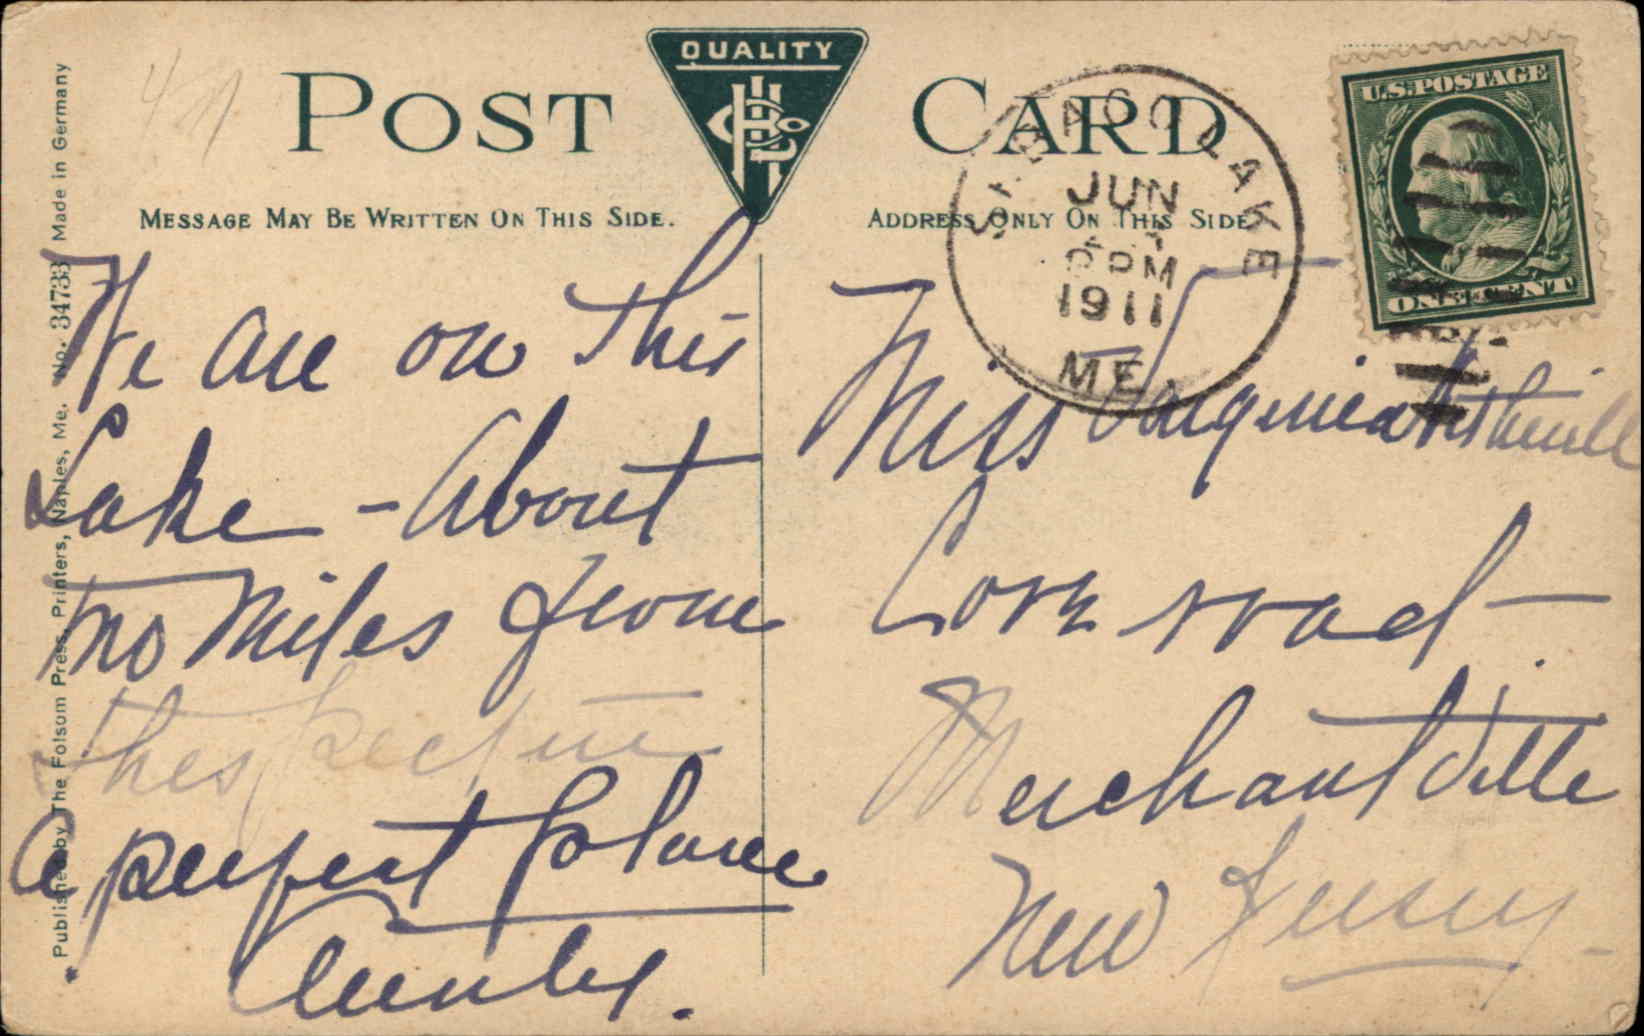 QUALITY
POST CARD
MESSAGE MAY BE WRITTEN ON THIS SIDE.
ADDRESS ONLY ON THIS SIDE
U.S. POSTAGE
ONE CENT
LAKE
JUN
PM
1911
ME.
We are on this
Lake - About
two miles from
this picture
A perfect place
Aunty.
Miss Virginia
Cove road -
Merchantville
New Jersey -
Published by The Folsom Press, Printers, Naples, Me. No. 34733 Made in Germany